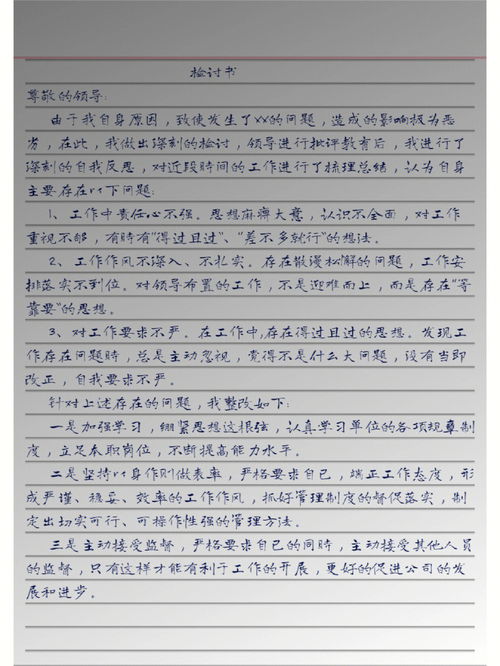 检讨书
尊敬的领导:
由于我自身原因，致使发生了XX的问题，造成的影响极为恶
劣，在此，我做出深刻的检讨，领导进行批评教育后，我进行了
深刻的自我反思，对近段时间的工作进行了梳理总结，认为自身
主要存在以下问题:
1、工作中责任心不强。思想麻痹大意，认识不全面，对工作
重视不够，有时有"得过且过"、"差不多就行"的想法。
2、工作作风不深入、不扎实。存在散漫松懈的问题，工作安
排落实不到位。对领导布置的工作，不是迎难而上，而是存在"等
靠要"的思想。
3、对工作要求不严。在工作中,存在得过且过的思想。发现工
作存在问题时，总是主动忽视，觉得不是什么大问题，没有当即
改正，自我要求不严。
针对上述存在的问题，我整改如下:
一是加强学习，绷紧思想这根弦，认真学习单位的各项规章制
度，立足本职岗位，不断提高能力水平。
二是坚持以身作则做表率，严格要求自己，端正工作态度，形
成严谨、稳妥、效率的工作作风，抓好管理制度的督促落实，制
定出切实可行、可操作性强的管理方法。
三是主动接受监督，严格要求自己的同时，主动接受其他人员
的监督，只有这样才能有利于工作的开展，更好的促进公司的发
展和进步。